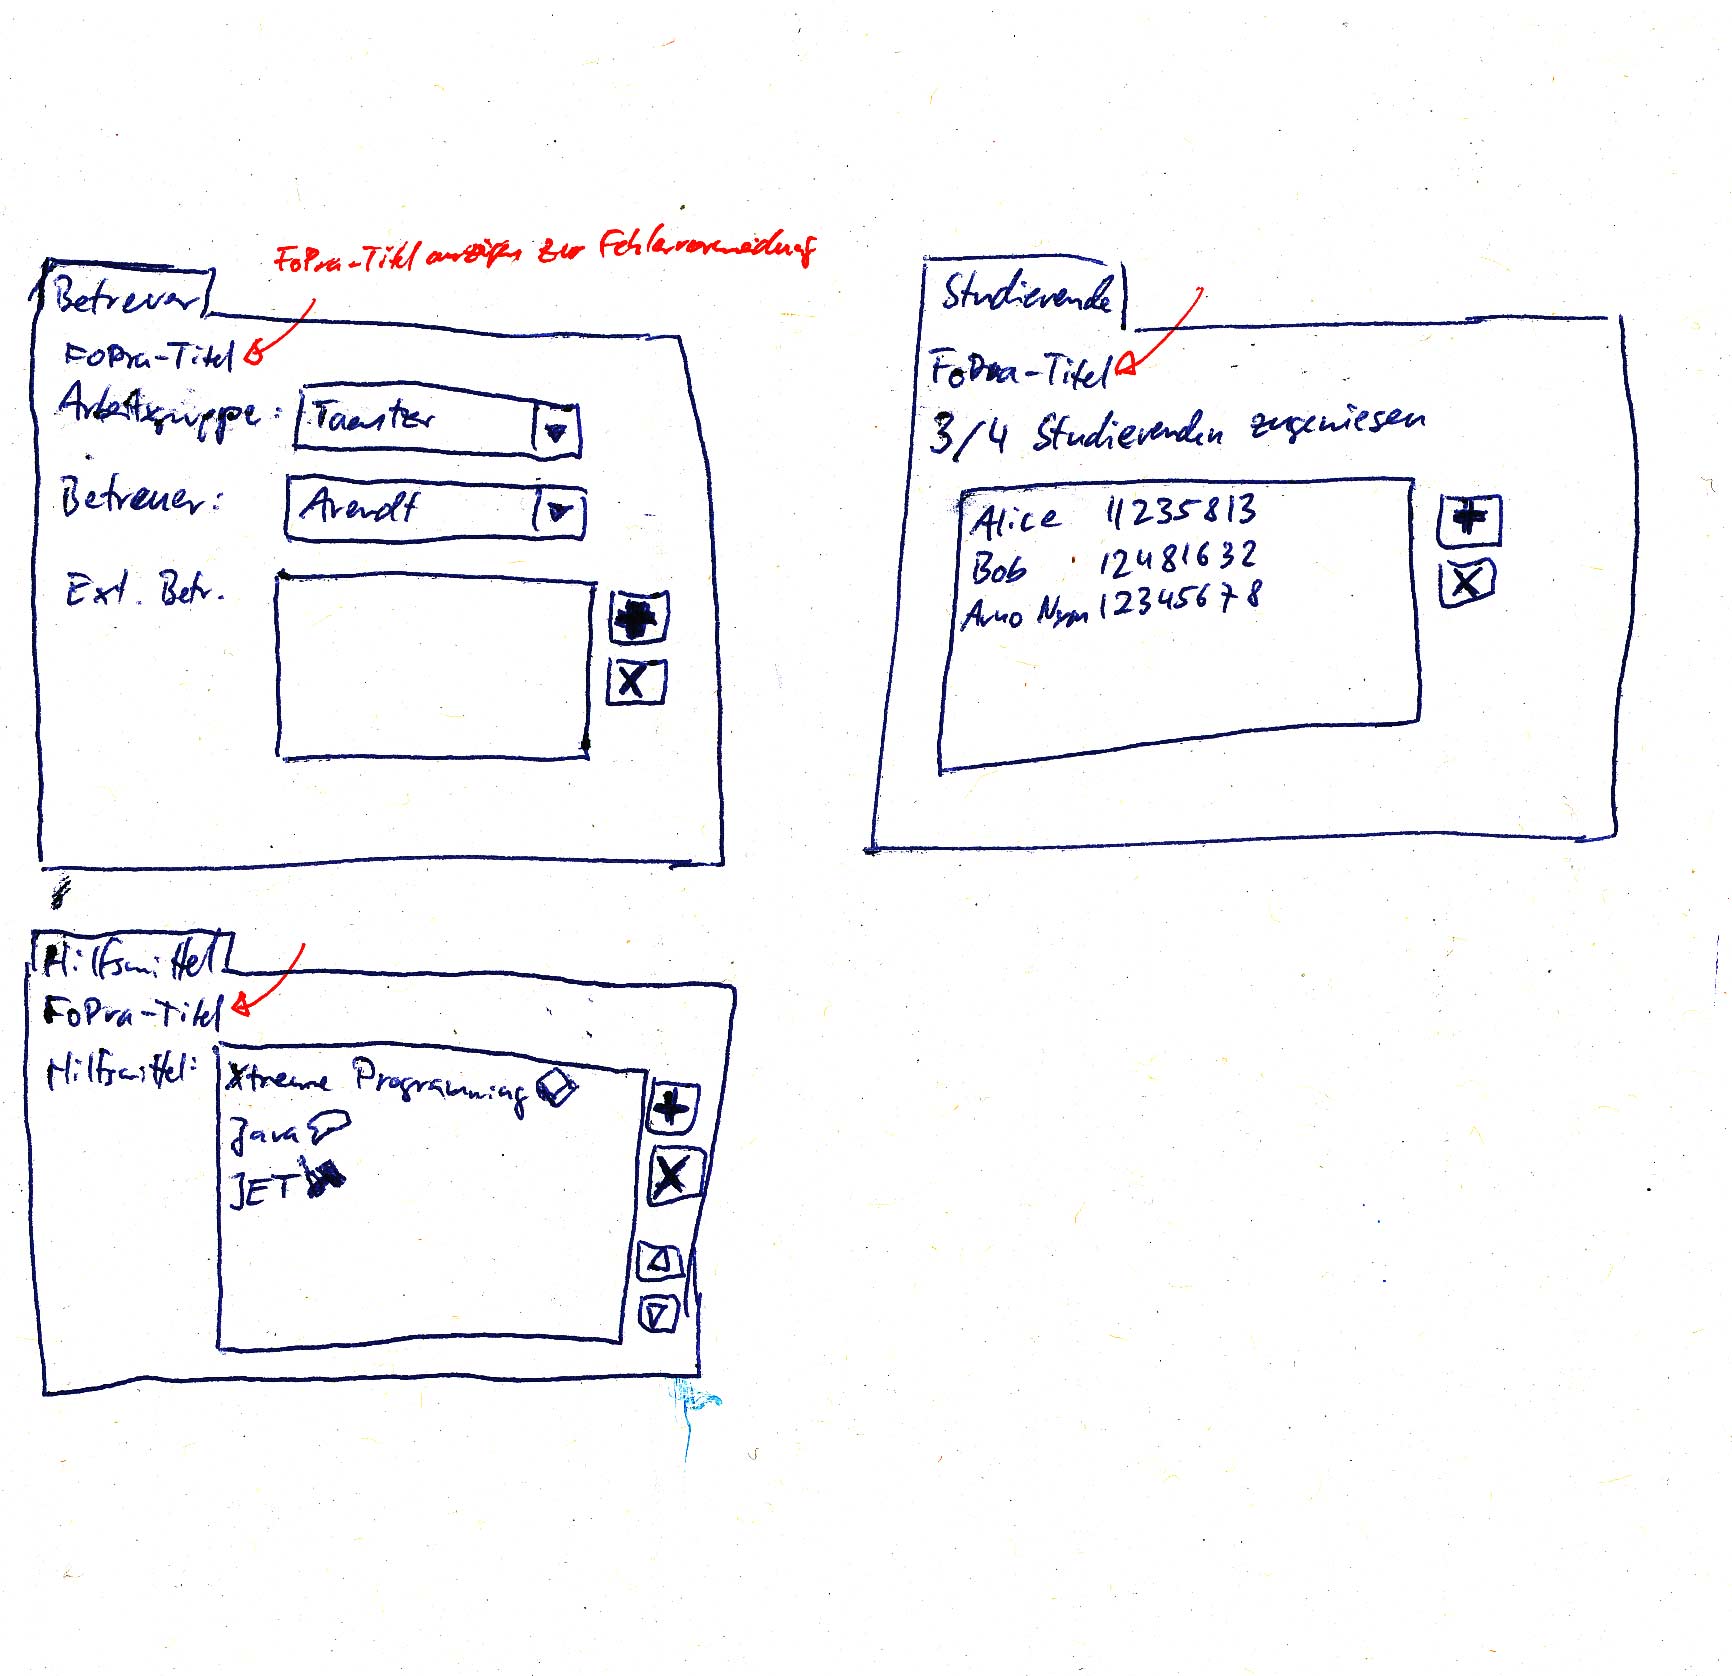 FoPra-Titel anzeigen zur Fehlervermeidung
Betreuer
FoPra-Titel
Arbeitsgruppe: Taentzer
Betreuer: Arendt
Ext. Betr.
X
Studierende
FoPra-Titel
3/4 Studierenden zugewiesen
Alice 11235813
Bob 12481632
Arno Nym 12345678
X
Hilfsmittel
FoPra-Titel
Hilfsmittel: Xtreme Programming
Java
JET
X